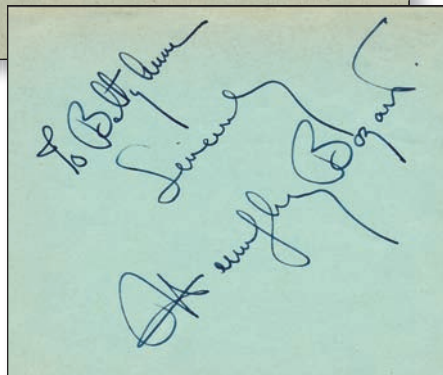 To Betty Anne
Sincerely
Humphrey Bogart